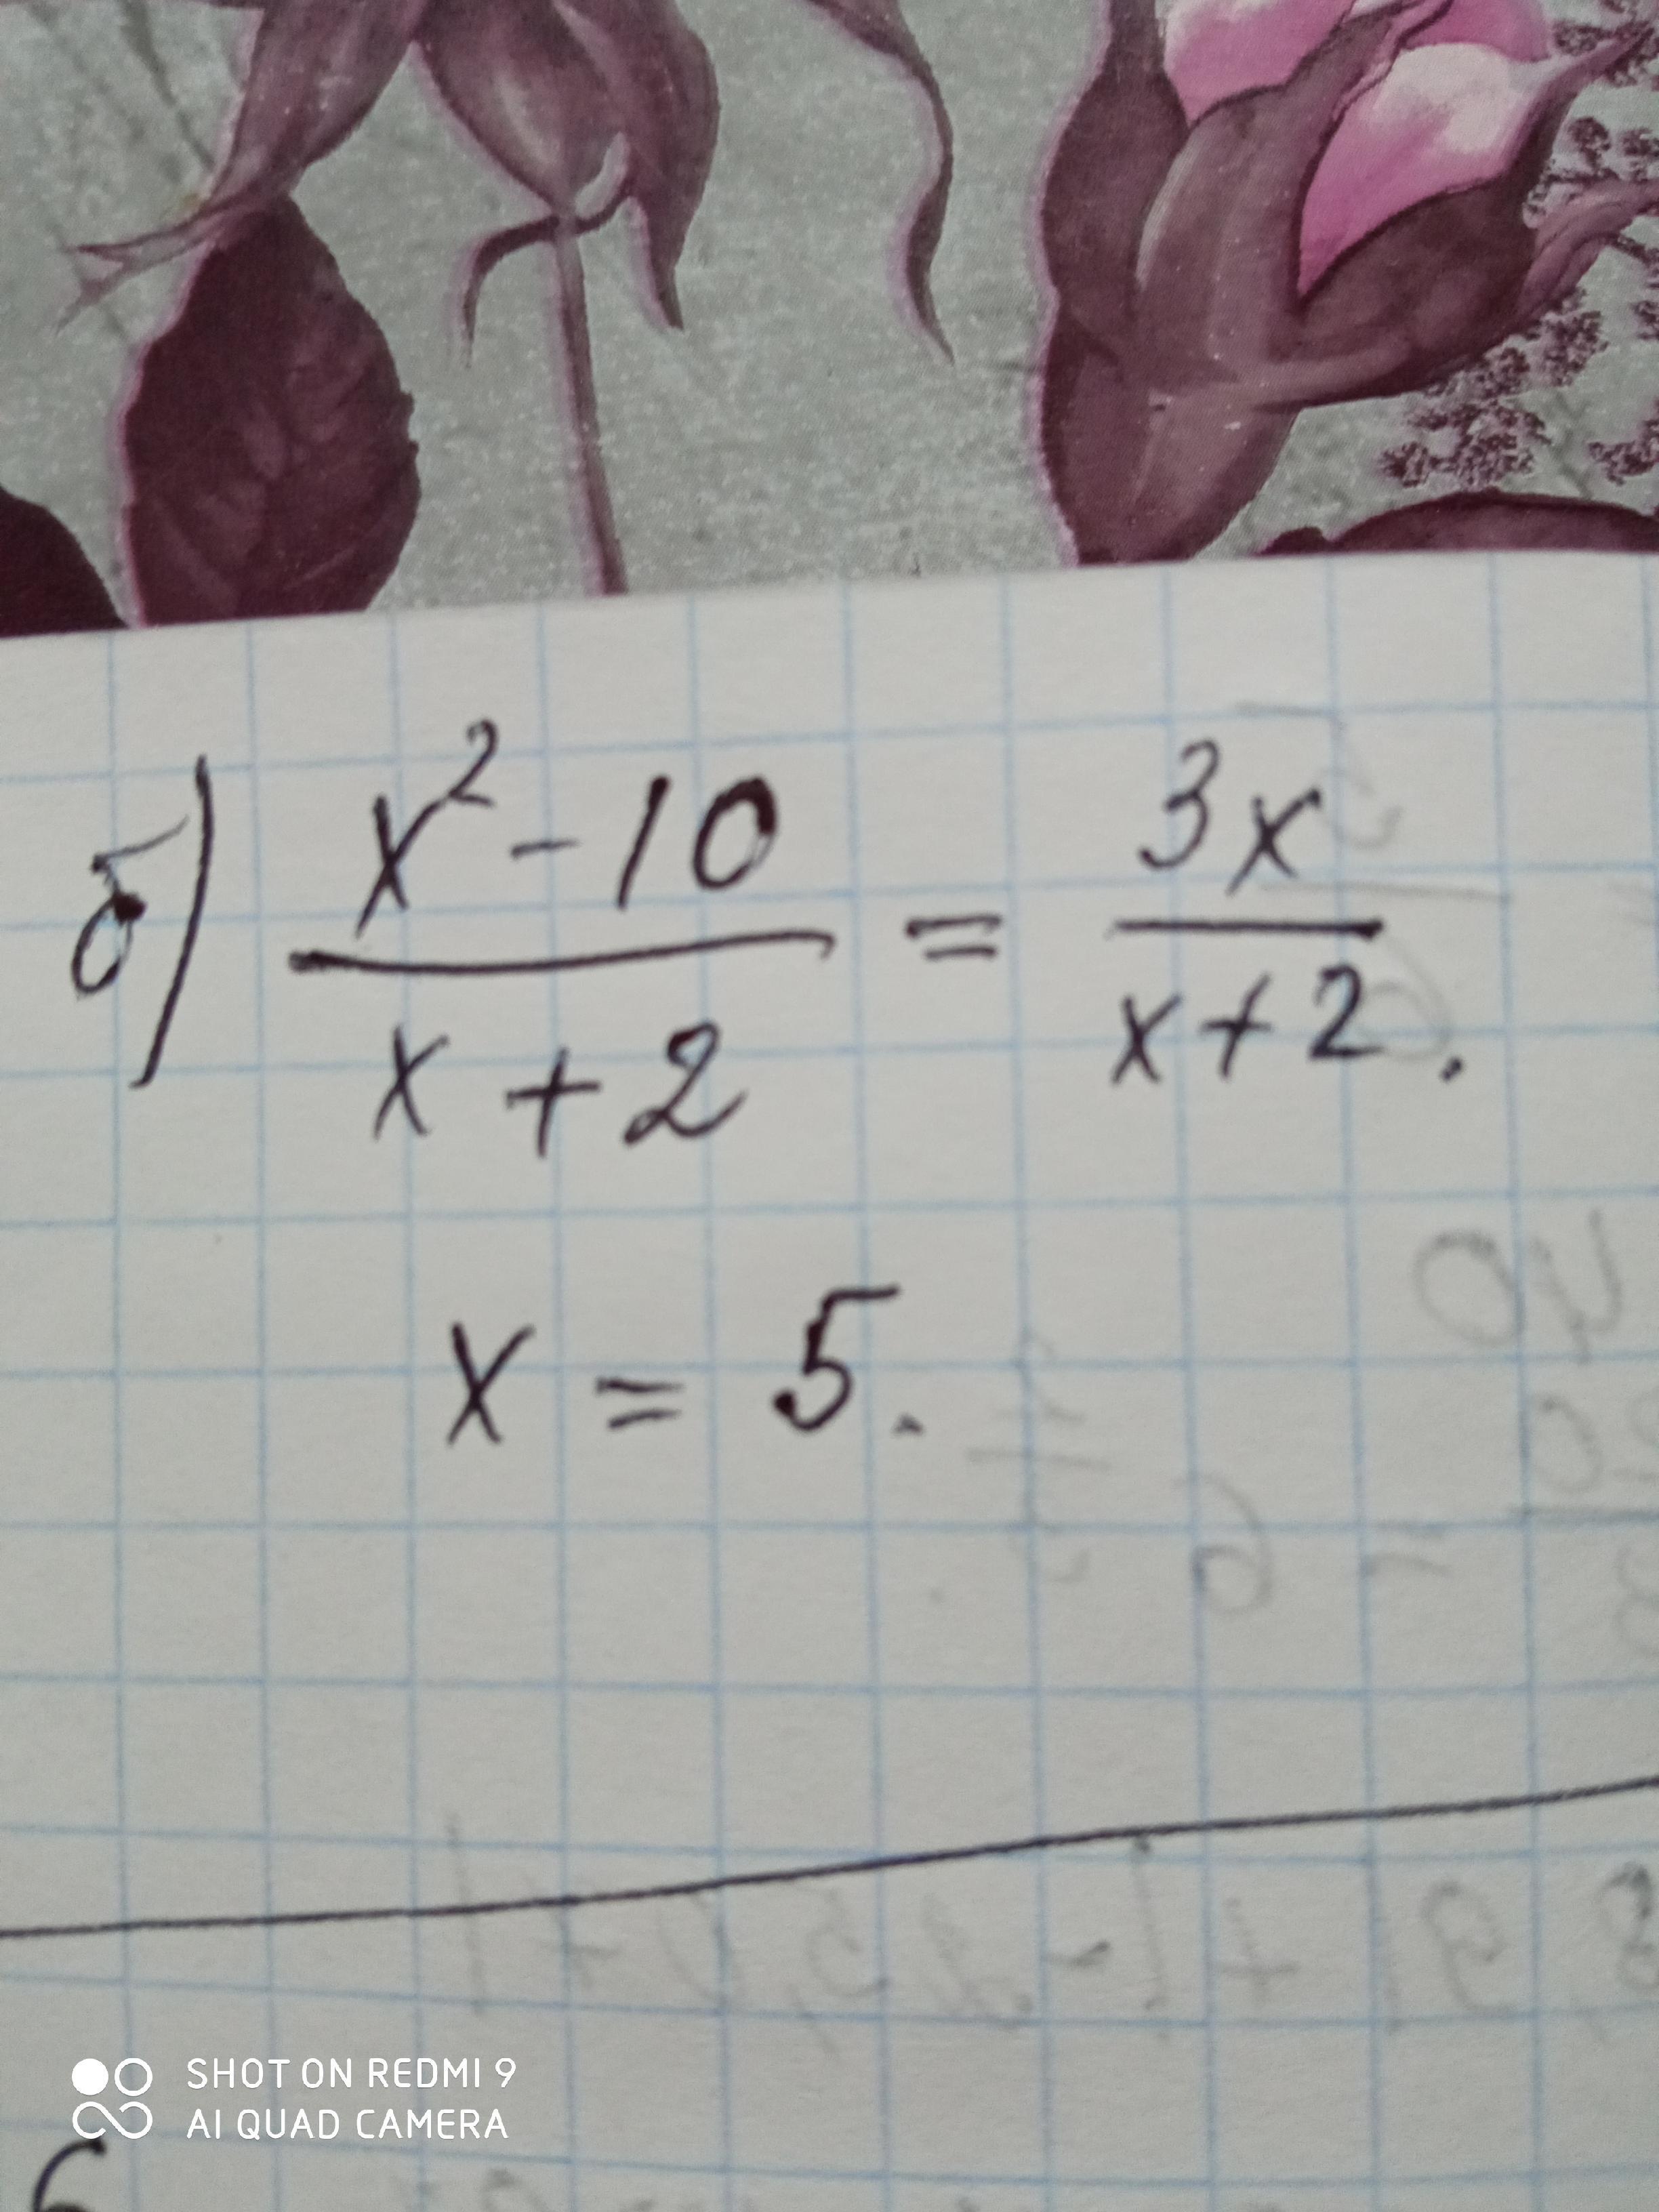 б) x² - 10 / x + 2 = 3x / x + 2.
x = 5.
SHOT ON REDMI 9
AI QUAD CAMERA